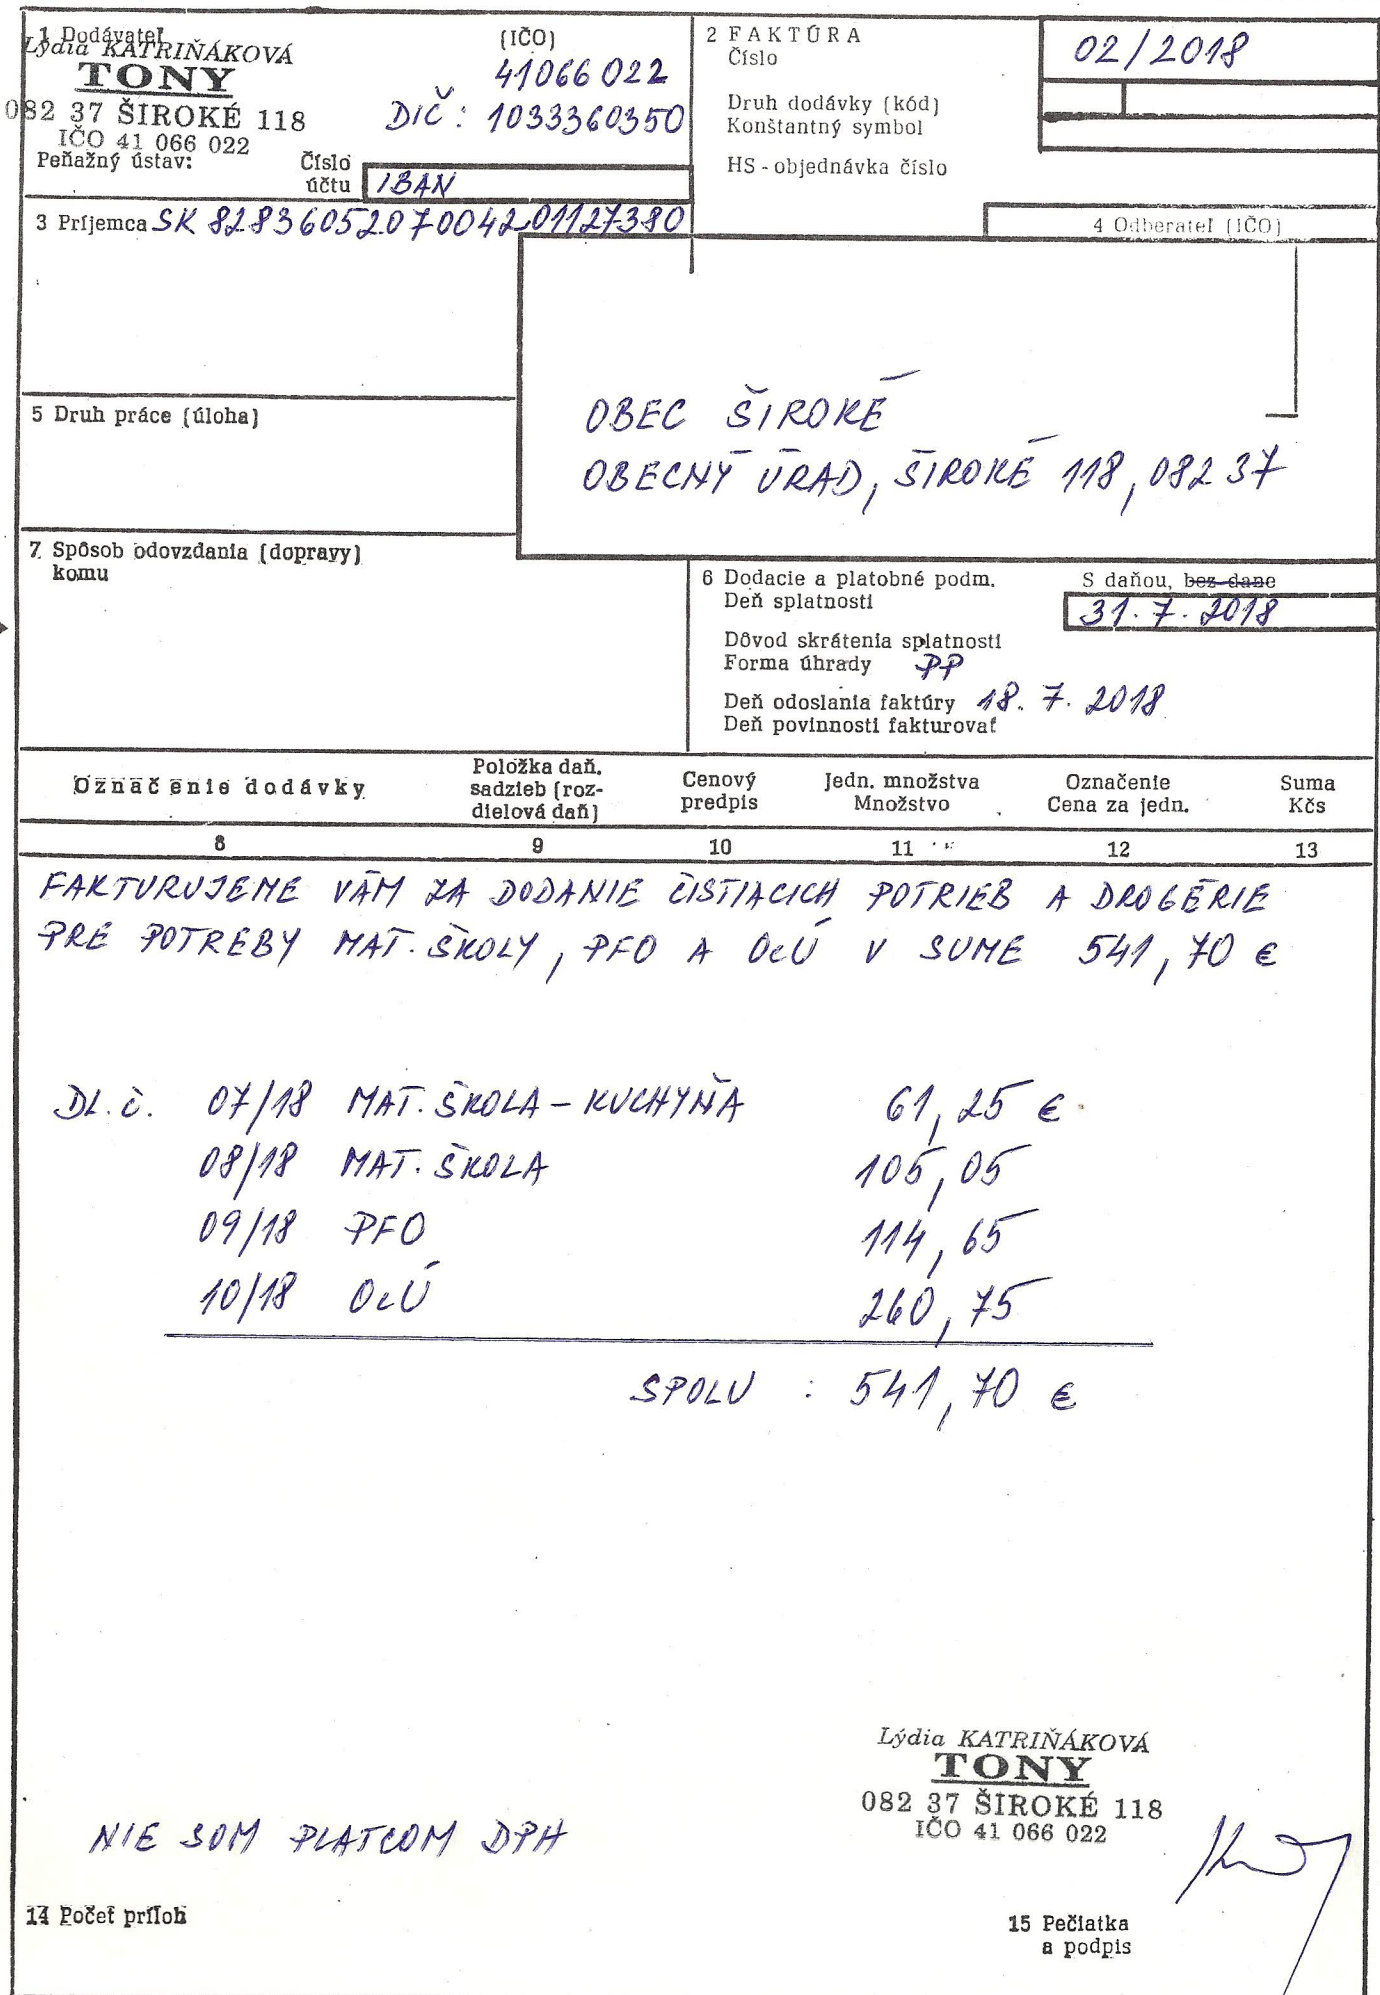 1 Dodávateľ
Lýdia KATRIŇÁKOVÁ
TONY
082 37 ŠIROKÉ 118
IČO 41 066 022
(IČO)
41066 022
DIČ: 1033360350
Peňažný ústav:
Číslo účtu
IBAN
2 FAKTÚRA
Číslo
02/2018
Druh dodávky (kód)
Konštantný symbol
HS - objednávka číslo
3 Príjemca SK 8283605207004201127380
4 Odberateľ (IČO)
OBEC ŠIROKÉ
OBECNÝ ÚRAD, ŠIROKÉ 118, 082 37
5 Druh práce (úloha)
7 Spôsob odovzdania (dopravy)
komu
6 Dodacie a platobné podm.
S daňou, bez dane
Deň splatnosti
31. 7. 2018
Dôvod skrátenia splatnosti
Forma úhrady PP
Deň odoslania faktúry 18. 7. 2018
Deň povinnosti fakturovať
Označenie dodávky
Položka daň.
sadzieb (roz-
dielová daň)
Cenový
predpis
Jedn. množstva
Množstvo
Označenie
Cena za jedn.
Suma
Kčs
8 9 10 11 12 13
FAKTURUJEME VÁM ZA DODANIE ČISTIACICH POTRIEB A DROGÉRIE
PRE POTREBY MAT. ŠKOLY, PFO A OcÚ V SUME 541,70 €
DL.č. 07/18 MAT. ŠKOLA - KUCHYŇA 61,25 €
08/18 MAT. ŠKOLA 105,05
09/18 PFO 114,65
10/18 OcÚ 260,75
SPOLU : 541,70 €
Lýdia KATRIŇÁKOVÁ
TONY
082 37 ŠIROKÉ 118
IČO 41 066 022
NIE SOM PLATCOM DPH
14 Počet príloh
15 Pečiatka
a podpis